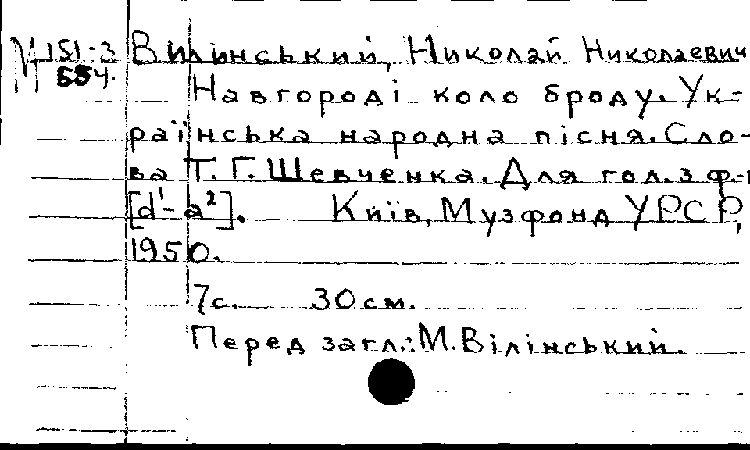 М 151-3 Вилинський, Николай Николаевич
554. Навгороді коло броду. Ук-
раїнська народна пісня. Сло-
ва Т. Г. Шевченка. Для гол. з ф-п
[d¹-a²]. Київ, Музфонд УРСР,
1950.
7с. 30см.
Перед загл.: М. Вілінський.